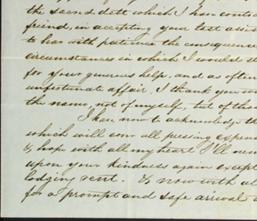 the second debt which I have contr
friend, in accepting your last assis
to bear with patience the consequence
circumstances in which I would st
for your generous help, and as often
unfortunate affair. I thank you
the name, not of myself, but of tho
I have now to acknowledge th
which will cover all pressing expen
& hope with all my heart I'll
upon your kindness again except
lodging rent. & now with al
for a prompt and safe arrival